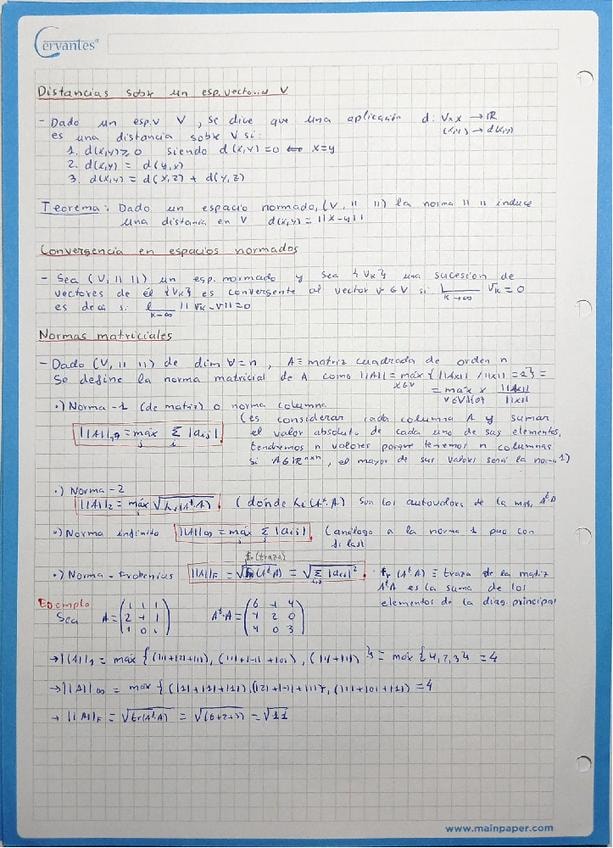 Cervantes
Distancias sobre un esp. vectorial V
- Dado un esp.v V, se dice que una aplicación d: VxX → ℝ
es una distancia sobre V si: (x,y) → d(x,y)
1. d(x,y) ≥ 0 siendo d(x,y)=0 ⟺ x=y
2. d(x,y) = d(y,x)
3. d(x,y) = d(x,z) + d(y,z)
Teorema: Dado un espacio normado, (V, || ||) la norma || || induce
una distancia en V d(x,y) = ||x-y||
Convergencia en espacios normados
- Sea (V, || ||) un esp. normado y sea {Vk} una sucesión de
vectores de él {Vk} es convergente al vector v ∈ V si k→∞ Vk = 0
es decir si k→∞ ||Vk - V|| = 0
Normas matriciales
- Dado (V, || ||) de dim V = n, A ≡ matriz cuadrada de orden n
Se define la norma matricial de A como ||A|| = máx x∈V {||Ax|| / ||x|| = 1} =
= máx ||Ax|| / ||x||
·) Norma-1 (de matriz) o norma columna
(es considerar cada columna A y sumar
||A||₁ = máx j Σ i |aij| el valor absoluto de cada uno de sus elementos,
tendremos n valores porque tenemos n columnas
si A∈ℝⁿˣⁿ, el mayor de sus valores será la norma 1)
·) Norma-2
||A||₂ = máx i √λi(AᵗA) (donde λi(AᵗA) son los autovalores de la mat. AᵗA
·) Norma infinito ||A||∞ = máx i Σ j |aij| (análogo a la norma 1 pero con
filas)
tr (traza)
·) Norma-Frobenius ||A||F = √tr(AᵗA) = √Σ i,j |aij|². tr(AᵗA) ≡ traza de la matriz
AᵗA es la suma de los
elementos de la diag. principal
Ejemplo
Sea A = (1 1 1
1 0 1) AᵗA = (6
4 2 0
4 0 3)
→ ||A||₁ = máx {(|1|+|2|+|1|), (|1|+|-1|+|0|), (|1|+|1|+|1|)} = máx {4,2,3} = 4
→ ||A||∞ = máx {(|1|+|1|+|1|), (|2|+|-1|+|1|), (|1|+|0|+|1|)} = 4
→ ||A||F = √tr(AᵗA) = √(6+2+3) = √11
www.mainpaper.com